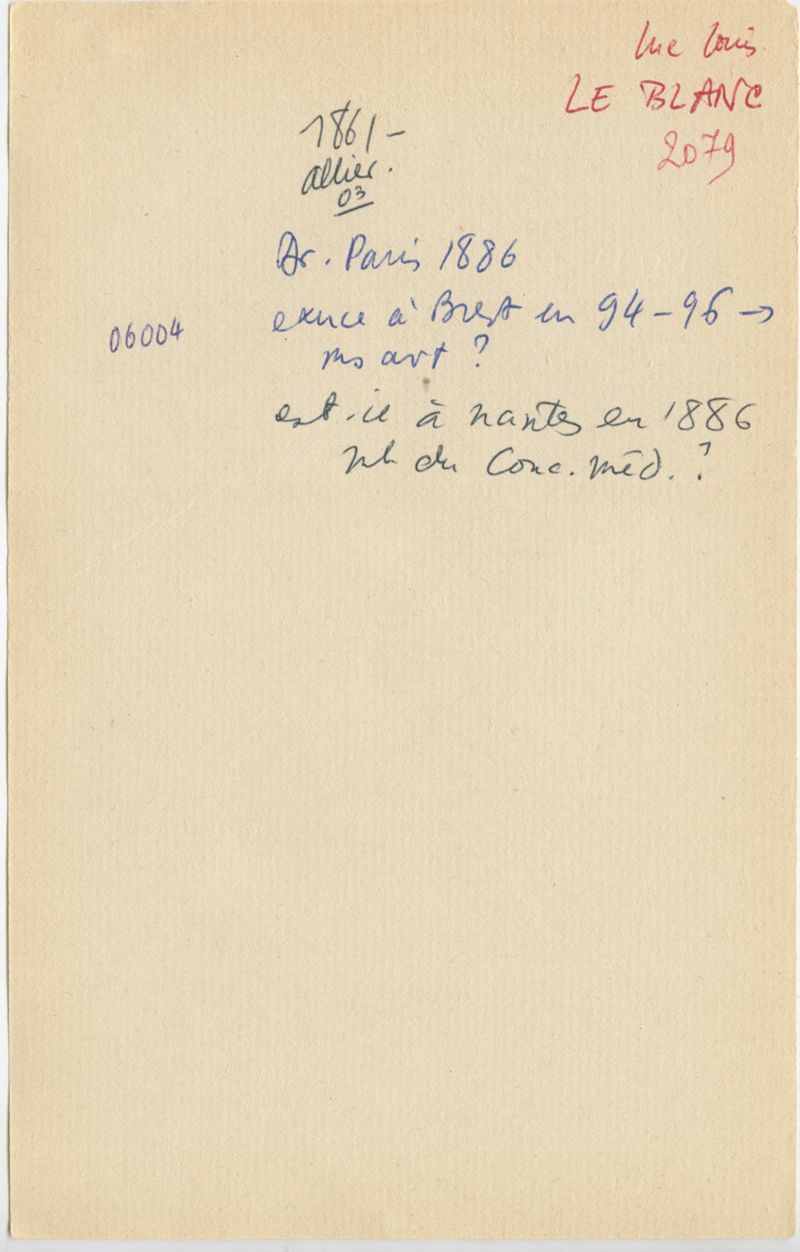 Luc Louis
LE BLANC
2079
1861-
Allier.
03
Dr. Paris 1886
06004
exerce à Brest en 94-96 →
avt ?
est-il à Nantes en 1886
du Conc. Méd. ?